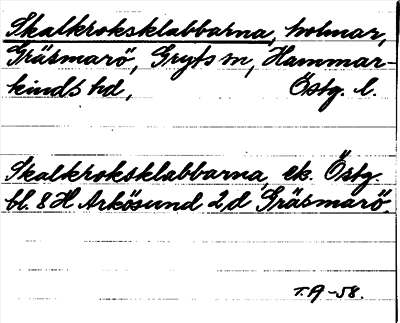 Skalkroksklabbarna, holmar,
Gräsmarö, Gryts sn, Hammar-
kinds hd, Östg. l.
Skalkroksklabbarna, ek. Östg.
bl. 8 H Arkösund 2,d Gräsmarö.
T.A-58.